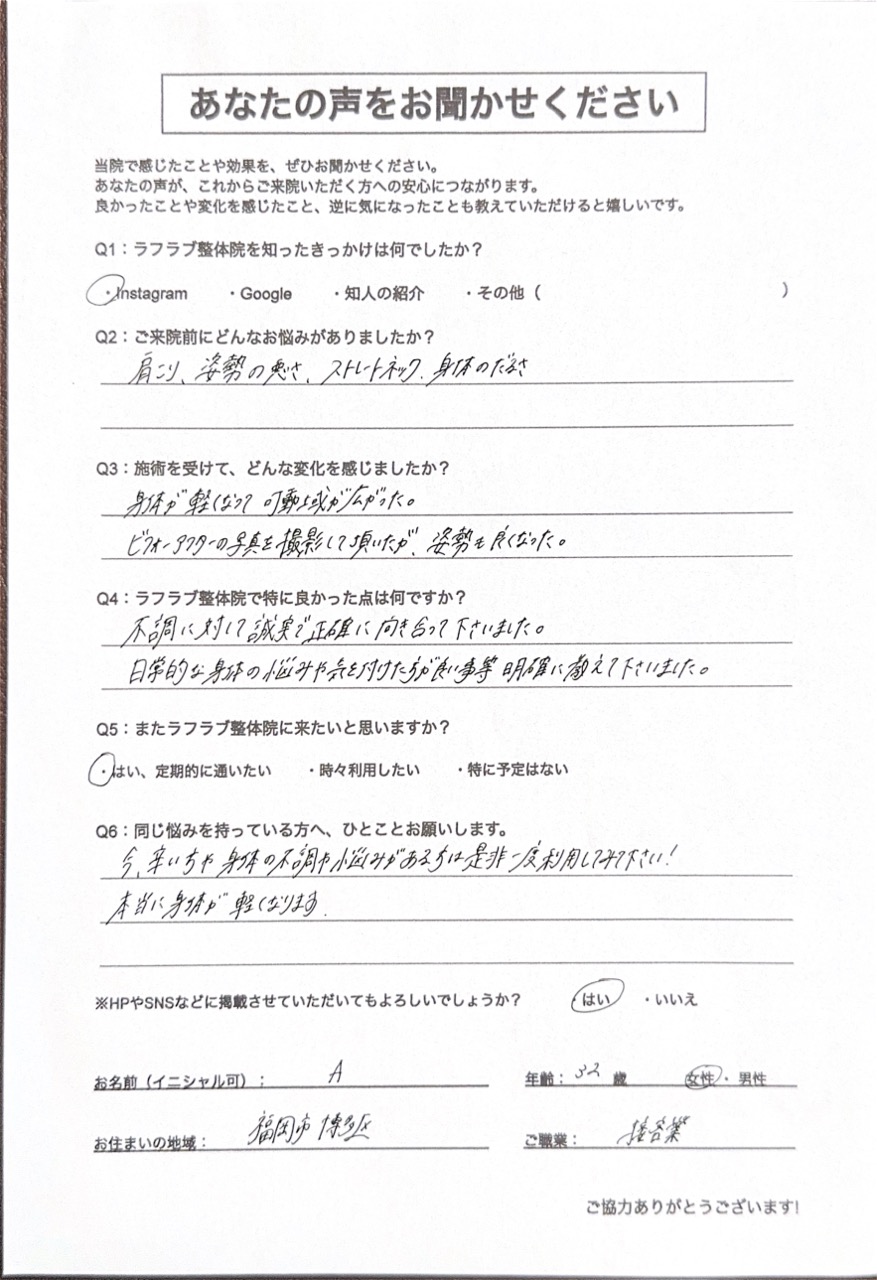 あなたの声をお聞かせください
当院で感じたことや効果を、ぜひお聞かせください。
あなたの声が、これからご来院いただく方への安心につながります。
良かったことや変化を感じたこと、逆に気になったことも教えていただけると嬉しいです。
Q1：ラフラブ整体院を知ったきっかけは何でしたか？
・Instagram ・Google ・知人の紹介 ・その他（ ）
Q2：ご来院前にどんなお悩みがありましたか？
肩こり、姿勢の悪さ、ストレートネック、身体のだるさ
Q3：施術を受けて、どんな変化を感じましたか？
身体が軽くなって可動域が広がった。
ビフォーアフターの写真を撮影して頂いたが、姿勢も良くなった。
Q4：ラフラブ整体院で特に良かった点は何ですか？
不調に対して誠実で正確に向き合って下さいました。
日常的な身体の悩みや気を付けた方が良い事等明確に教えて下さいました。
Q5：またラフラブ整体院に来たいと思いますか？
・はい、定期的に通いたい ・時々利用したい ・特に予定はない
Q6：同じ悩みを持っている方へ、ひとことお願いします。
今、辛い方や身体の不調や悩みがある方は是非一度利用してみて下さい！
本当に身体が軽くなります.
※HPやSNSなどに掲載させていただいてもよろしいでしょうか？ ・はい ・いいえ
お名前（イニシャル可）： A 年齢： 32 歳 女性 ・ 男性
お住まいの地域： 福岡市博多区 ご職業： 接客業
ご協力ありがとうございます!